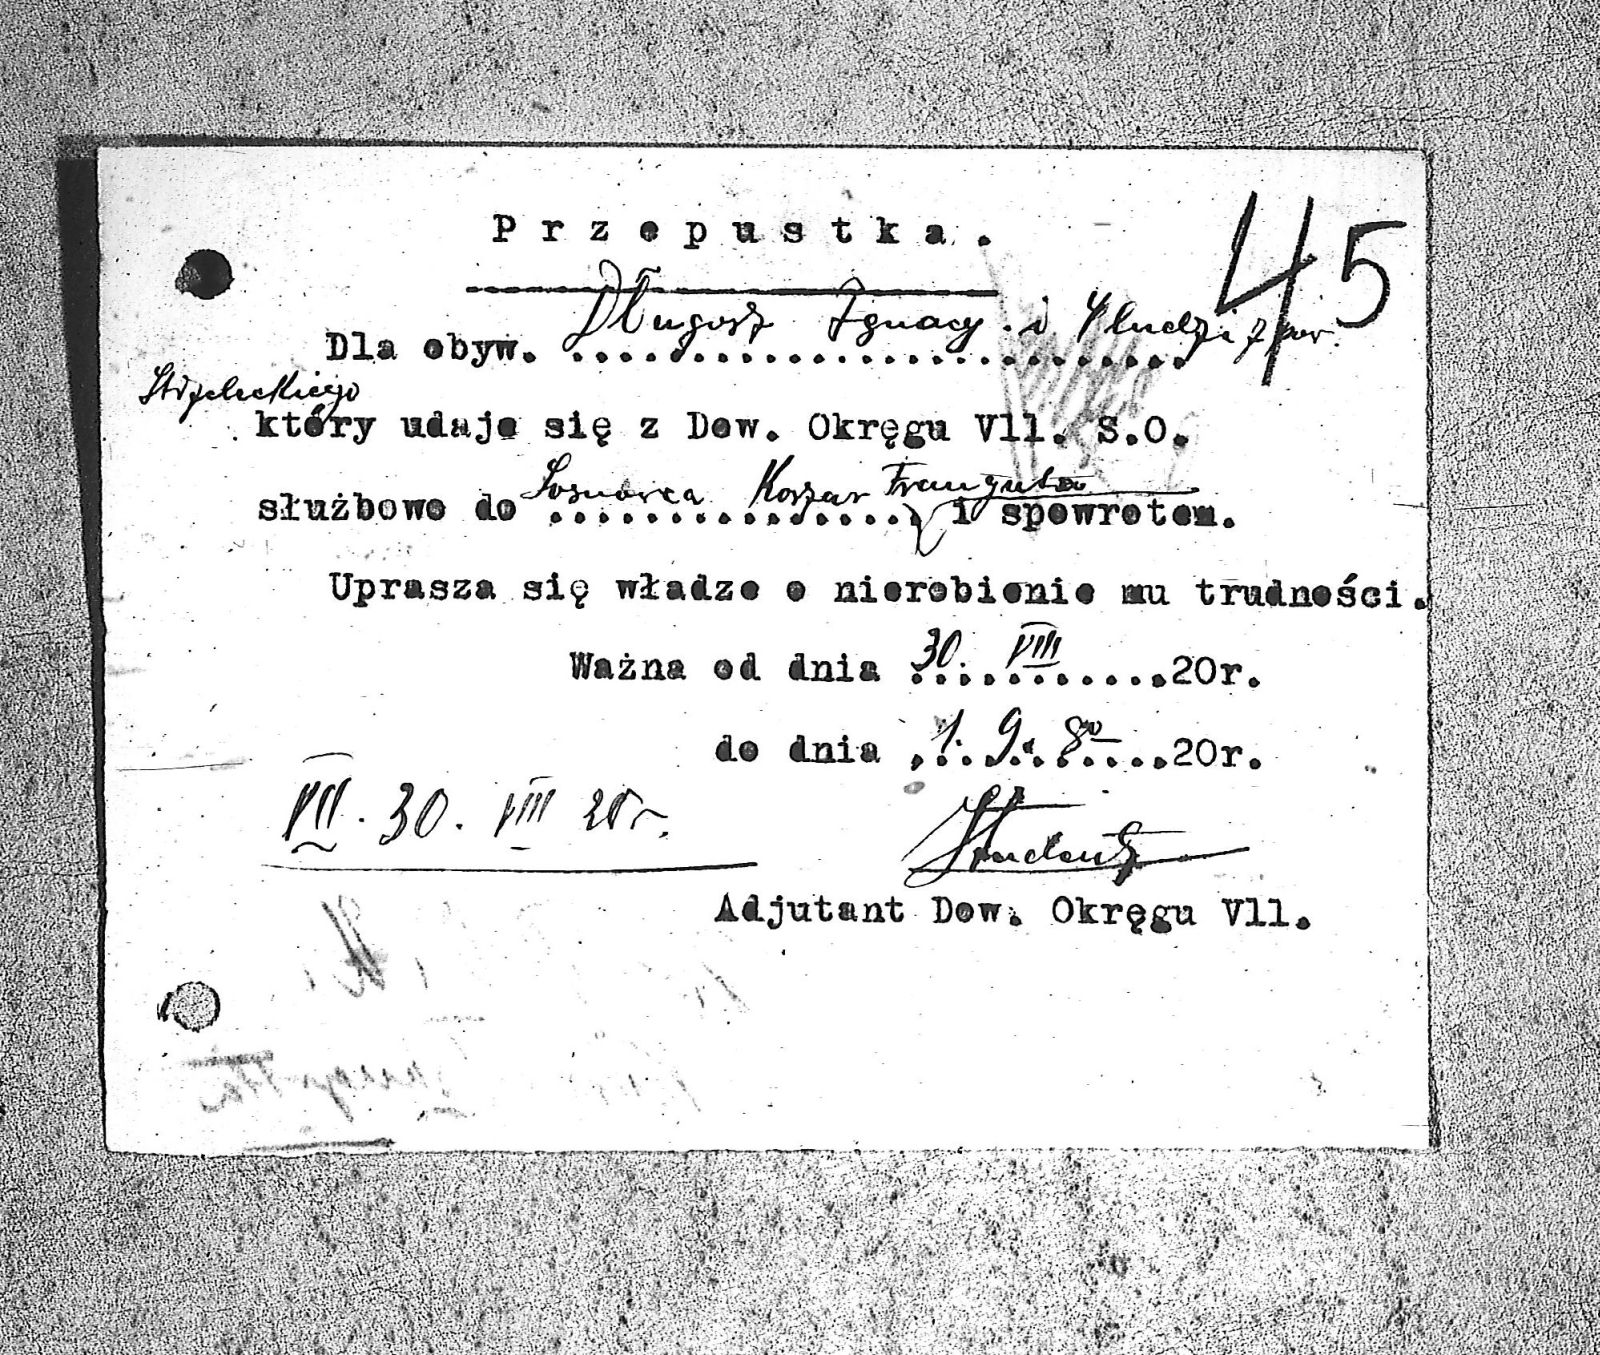 45
Przepustka.
Dla obyw. Długosz Ignacy i 4 ludzi z pow.
Strzeleckiego
który udaje się z Dow. Okręgu Vll. S.O.
służbowo do Sosnowca Koszar i spowrotem.
Uprasza się władze o nierobienie mu trudności.
Ważna od dnia 30. VIII 20r.
do dnia 1. 9. 20r.
VII. 30. VIII 20 r.
Adjutant Dow. Okręgu Vll.